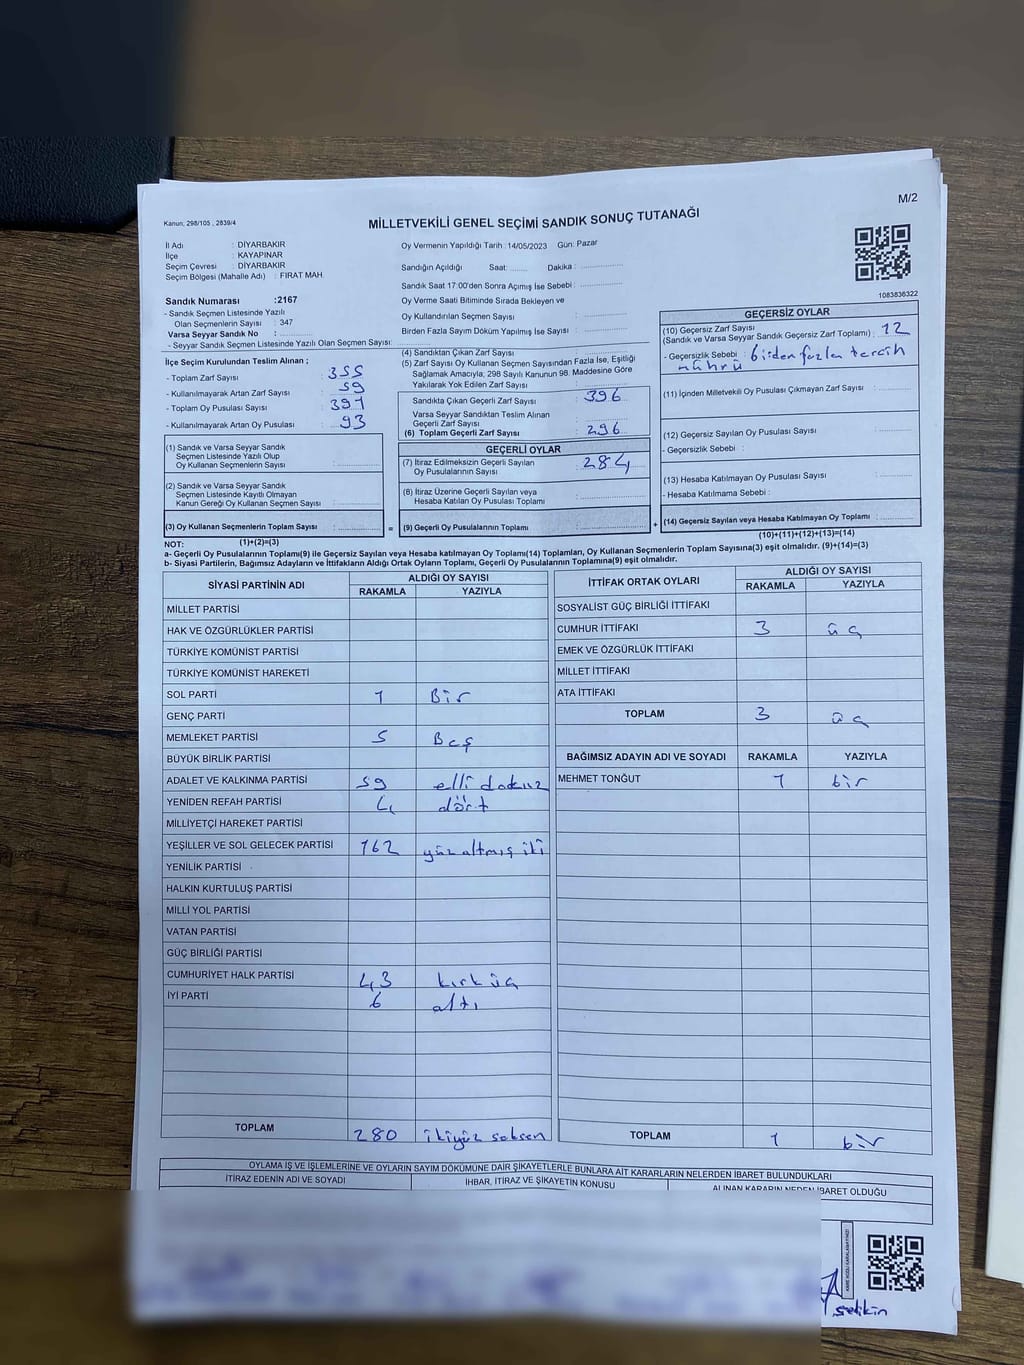 M/2
Kanun, 298/105 , 2839/4
MİLLETVEKİLİ GENEL SEÇİMİ SANDIK SONUÇ TUTANAĞI
İl Adı : DİYARBAKIR
İlçe : KAYAPINAR
Seçim Çevresi : DİYARBAKIR
Seçim Bölgesi (Mahalle Adı) : FIRAT MAH.
Sandık Numarası :2167
- Sandık Seçmen Listesinde Yazılı
Olan Seçmenlerin Sayısı : 347
Varsa Seyyar Sandık No :
- Seyyar Sandık Seçmen Listesinde Yazılı Olan Seçmen Sayısı:
Oy Vermenin Yapıldığı Tarih : 14/05/2023 Gün: Pazar
Sandığın Açıldığı Saat: Dakika :
Sandık Saat 17:00'den Sonra Açımış İse Sebebi :
Oy Verme Saati Bitiminde Sırada Bekleyen ve
Oy Kullandırılan Seçmen Sayısı :
Birden Fazla Sayım Döküm Yapılmış İse Sayısı :
1083836322
İlçe Seçim Kurulundan Teslim Alınan ;
- Toplam Zarf Sayısı : 355
- Kullanılmayarak Artan Zarf Sayısı : 59
- Toplam Oy Pusulası Sayısı : 391
- Kullanılmayarak Artan Oy Pusulası : 93
(1) Sandık ve Varsa Seyyar Sandık
Seçmen Listesinde Yazılı Olup
Oy Kullanan Seçmenlerin Sayısı :
(2) Sandık ve Varsa Seyyar Sandık
Seçmen Listesinde Kayıtlı Olmayan
Kanun Gereği Oy Kullanan Seçmen Sayısı :
(3) Oy Kullanan Seçmenlerin Toplam Sayısı : =
(4) Sandıktan Çıkan Zarf Sayısı :
(5) Zarf Sayısı Oy Kullanan Seçmen Sayısından Fazla İse, Eşitliği
Sağlamak Amacıyla, 298 Sayılı Kanunun 98. Maddesine Göre
Yakılarak Yok Edilen Zarf Sayısı :
Sandıkta Çıkan Geçerli Zarf Sayısı : 396
Varsa Seyyar Sandıktan Teslim Alınan
Geçerli Zarf Sayısı :
(6) Toplam Geçerli Zarf Sayısı : 296
GEÇERLİ OYLAR
(7) İtiraz Edilmeksizin Geçerli Sayılan
Oy Pusulalarının Sayısı : 284
(8) İtiraz Üzerine Geçerli Sayılan veya
Hesaba Katılan Oy Pusulası Toplamı :
(9) Geçerli Oy Pusulalarının Toplamı : +
GEÇERSİZ OYLAR
(10) Geçersiz Zarf Sayısı
(Sandık ve Varsa Seyyar Sandık Geçersiz Zarf Toplamı) : 12
- Geçersizlik Sebebi : birden fazla tercih
mührü
(11) İçinden Milletvekili Oy Pusulası Çıkmayan Zarf Sayısı :
(12) Geçersiz Sayılan Oy Pusulası Sayısı :
- Geçersizlik Sebebi :
(13) Hesaba Katılmayan Oy Pusulası Sayısı :
- Hesaba Katılmama Sebebi :
(14) Geçersiz Sayılan veya Hesaba Katılmayan Oy Toplamı :
NOT: (1)+(2)=(3) (10)+(11)+(12)+(13)=(14)
a- Geçerli Oy Pusulalarının Toplamı(9) ile Geçersiz Sayılan veya Hesaba katılmayan Oy Toplamı(14) Toplamları, Oy Kullanan Seçmenlerin Toplam Sayısına(3) eşit olmalıdır. (9)+(14)=(3)
b- Siyasi Partilerin, Bağımsız Adayların ve İttifakların Aldığı Ortak Oyların Toplamı, Geçerli Oy Pusulalarının Toplamına(9) eşit olmalıdır.
SİYASİ PARTİNİN ADI ALDIĞI OY SAYISI
RAKAMLA YAZIYLA
MİLLET PARTİSİ
HAK VE ÖZGÜRLÜKLER PARTİSİ
TÜRKİYE KOMÜNİST PARTİSİ
TÜRKİYE KOMÜNİST HAREKETİ
SOL PARTİ 1 Bir
GENÇ PARTİ
MEMLEKET PARTİSİ 5 Beş
BÜYÜK BİRLİK PARTİSİ
ADALET VE KALKINMA PARTİSİ 59 elli dokuz
YENİDEN REFAH PARTİSİ 4 dört
MİLLİYETÇİ HAREKET PARTİSİ
YEŞİLLER VE SOL GELECEK PARTİSİ 162 yüz altmış iki
YENİLİK PARTİSİ
HALKIN KURTULUŞ PARTİSİ
MİLLİ YOL PARTİSİ
VATAN PARTİSİ
GÜÇ BİRLİĞİ PARTİSİ
CUMHURİYET HALK PARTİSİ 43 kırk üç
İYİ PARTİ 6 altı
TOPLAM 280 ikiyüz seksen
İTTİFAK ORTAK OYLARI ALDIĞI OY SAYISI
RAKAMLA YAZIYLA
SOSYALİST GÜÇ BİRLİĞİ İTTİFAKI
CUMHUR İTTİFAKI 3 üç
EMEK VE ÖZGÜRLÜK İTTİFAKI
MİLLET İTTİFAKI
ATA İTTİFAKI
TOPLAM 3 üç
BAĞIMSIZ ADAYIN ADI VE SOYADI RAKAMLA YAZIYLA
MEHMET TONĞUT 1 bir
TOPLAM 1 bir
OYLAMA İŞ VE İŞLEMLERİNE VE OYLARIN SAYIM DÖKÜMÜNE DAİR ŞİKAYETLERLE BUNLARA AİT KARARLARIN NELERDEN İBARET BULUNDUKLARI
İTİRAZ EDENİN ADI VE SOYADI İHBAR, İTİRAZ VE ŞİKAYETİN KONUSU ALINAN KARARIN NEDEN İBARET OLDUĞU